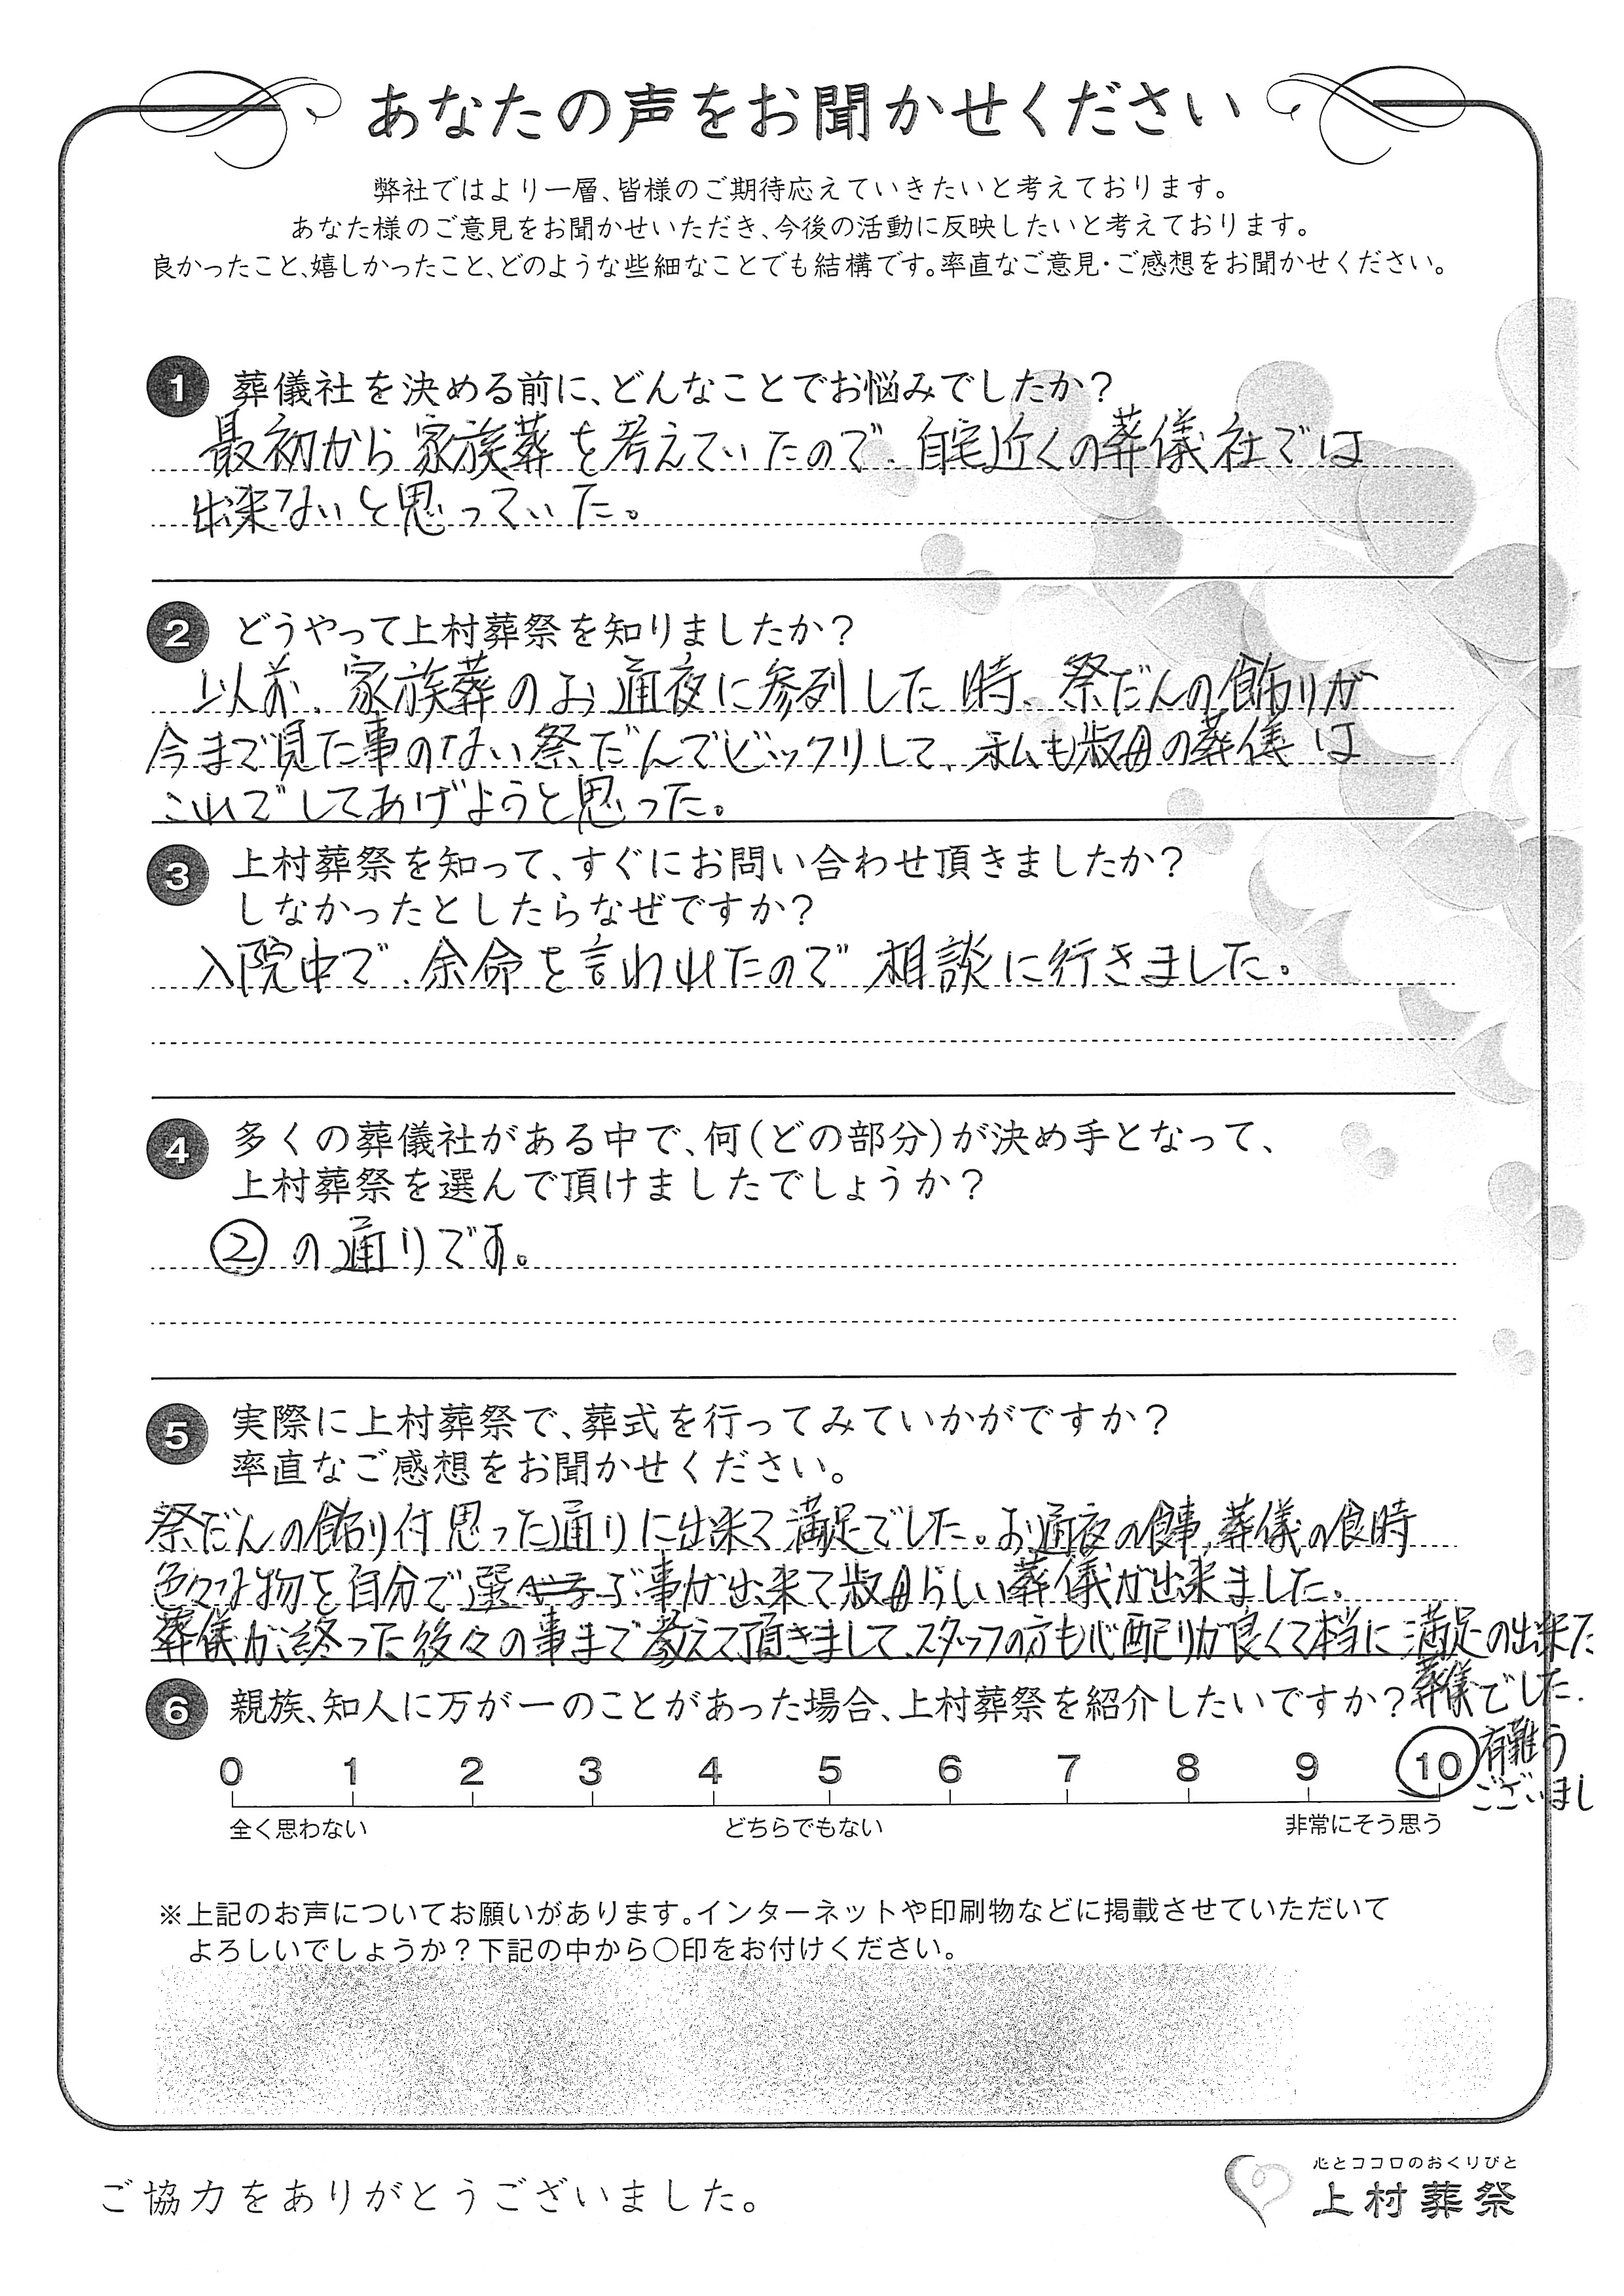 あなたの声をお聞かせください
弊社ではより一層、皆様のご期待応えていきたいと考えております。
あなた様のご意見をお聞かせいただき、今後の活動に反映したいと考えております。
良かったこと、嬉しかったこと、どのような些細なことでも結構です。率直なご意見・ご感想をお聞かせください。
1 葬儀社を決める前に、どんなことでお悩みでしたか?
最初から家族葬を考えていたので、自宅近くの葬儀社では
出来ないと思っていた。
2 どうやって上村葬祭を知りましたか?
以前、家族葬のお通夜に参列した時、祭だんの飾りが
今まで見た事のない祭だんでビックリして、私も叔母の葬儀は
これでしてあげようと思った。
3 上村葬祭を知って、すぐにお問い合わせ頂きましたか?
しなかったとしたらなぜですか?
入院中で、余命を言われたので相談に行きました。
4 多くの葬儀社がある中で、何(どの部分)が決め手となって、
上村葬祭を選んで頂けましたでしょうか?
②の通りです。
5 実際に上村葬祭で、葬式を行ってみていかがですか?
率直なご感想をお聞かせください。
祭だんの飾り付思った通りに出来て満足でした。お通夜の食事、葬儀の食時
色々な物を自分で選ぶ事が出来て叔母らしい葬儀が出来ました。
葬儀が終った後々の事まで教えて頂きまして、スタッフの方も心配りが良くて本当に満足の出来た
葬儀でした。
6 親族、知人に万が一のことがあった場合、上村葬祭を紹介したいですか?
有難う
ございまし
0 1 2 3 4 5 6 7 8 9 10
全く思わない どちらでもない 非常にそう思う
※上記のお声についてお願いがあります。インターネットや印刷物などに掲載させていただいて
よろしいでしょうか?下記の中から○印をお付けください。
ご協力をありがとうございました。
心とココロのおくりびと
上村葬祭